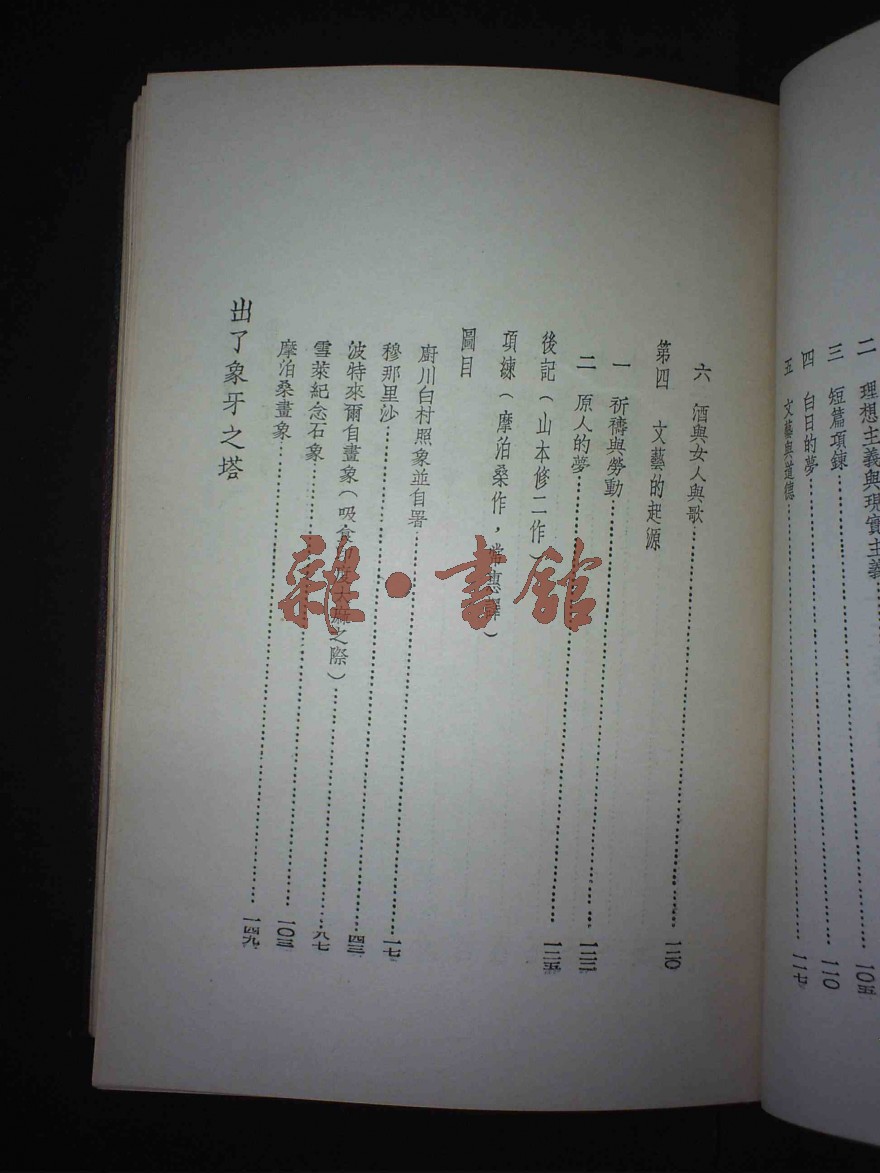 二　理想主義與現實主義
三　短篇項鍊……一〇五
四　白日的夢……一一〇
五　文藝與道德……一一七
六　酒與女人與歌……一二〇
第四　文藝的起源
一　祈禱與勞動……一二二
二　原人的夢……一二五
後記（山本修二作）
項鍊（摩泊桑作，常惠譯）
圖目
廚川白村照象並自署……一七
穆那里沙……四三
波特來爾自畫象（吸食印度大麻之際）……八七
雪萊紀念石象……一〇三
摩泊桑畫象……一四九
出了象牙之塔
雜·書館